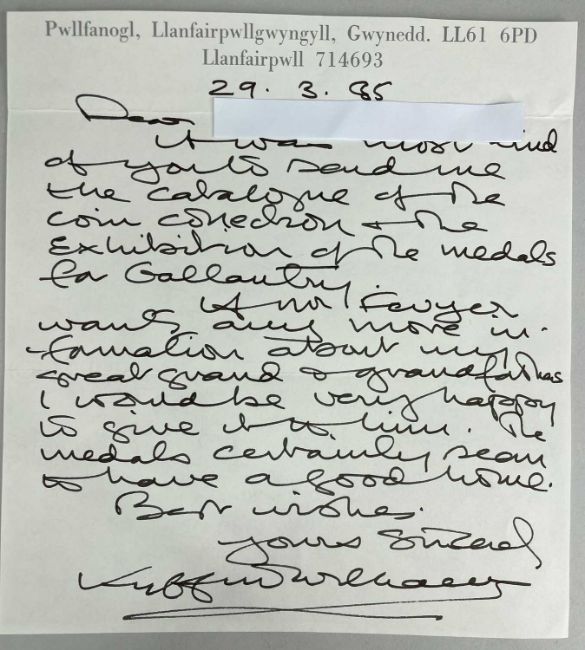 Pwllfanogl, Llanfairpwllgwyngyll, Gwynedd. LL61 6PD
Llanfairpwll 714693
29. 3. 85
Dear
It was most kind
of you to send me
the catalogue of the
coin collection & the
Exhibition of the medals
for Gallantry.
If Mr
wants any more in-
-formation about my
great grand & grandfathers
I would be very happy
to give it to him. The
medals certainly seem
to have a good home.
Best wishes.
Yours Sincerely
Kyffin Williams